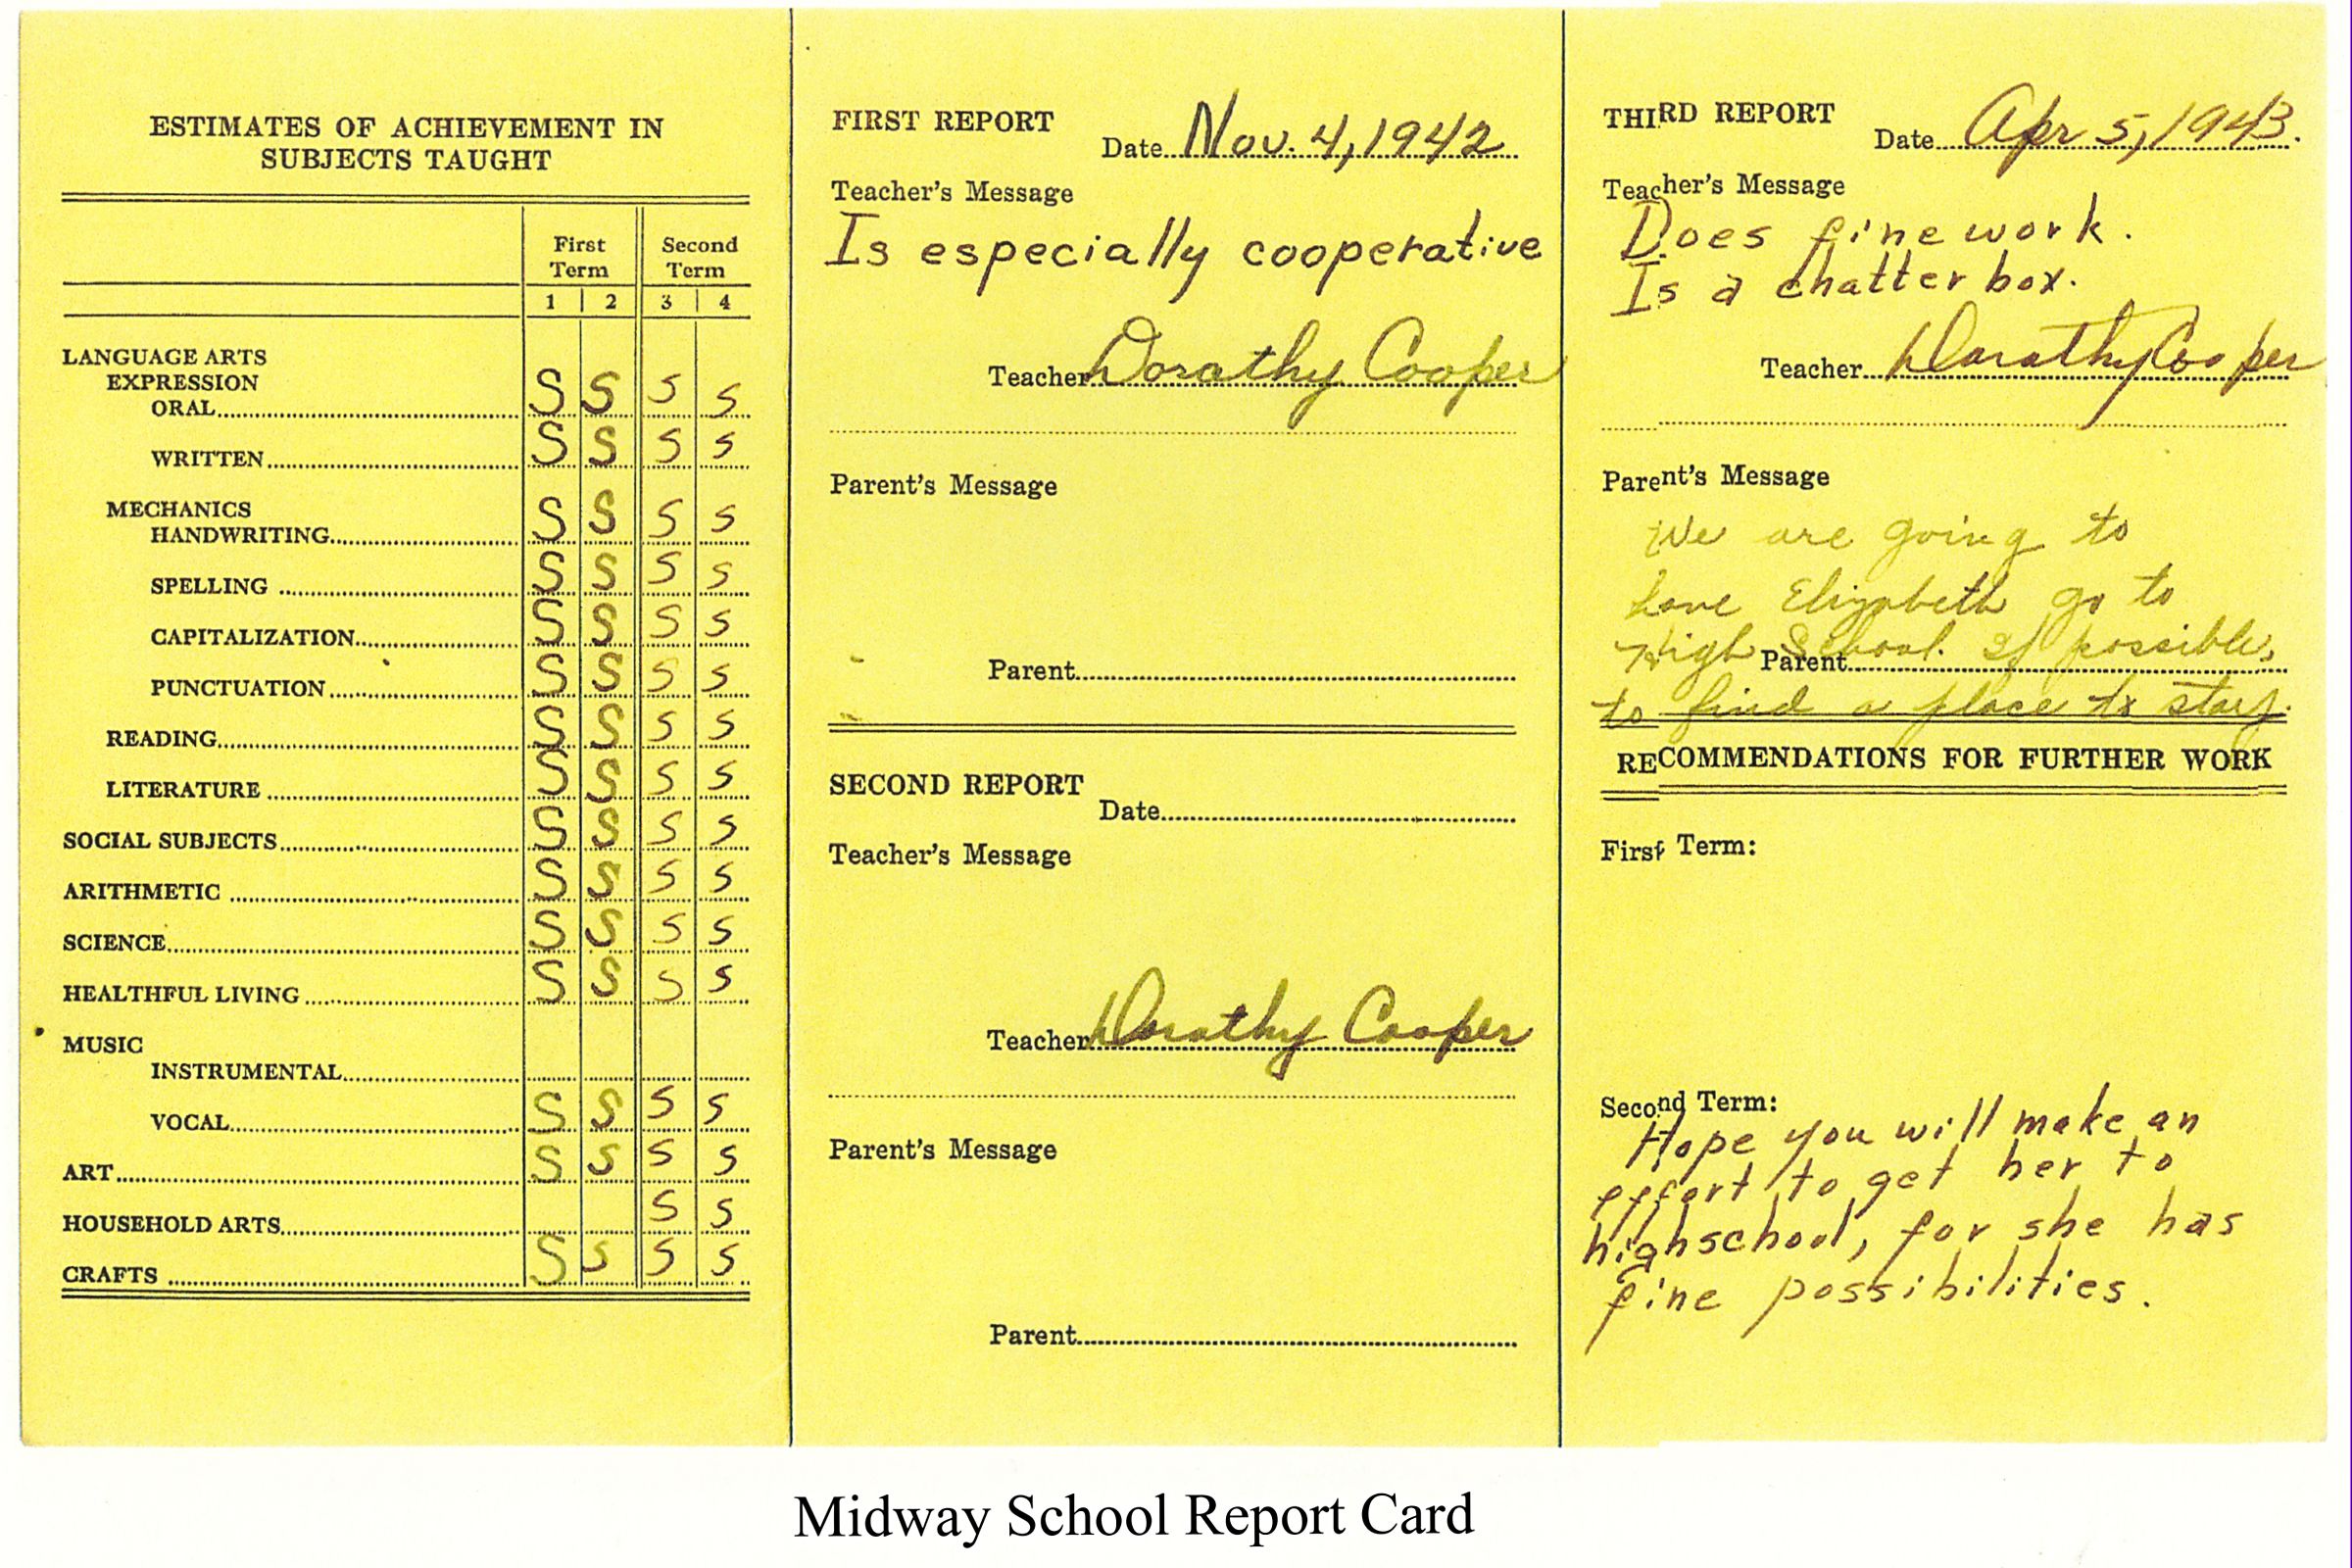 ESTIMATES OF ACHIEVEMENT IN
SUBJECTS TAUGHT
First Term Second Term
1 2 3 4
LANGUAGE ARTS
EXPRESSION
ORAL S S S S
WRITTEN S S S S
MECHANICS
HANDWRITING S S S S
SPELLING S S S S
CAPITALIZATION S S S S
PUNCTUATION S S S S
READING S S S S
LITERATURE S S S S
SOCIAL SUBJECTS S S S S
ARITHMETIC S S S S
SCIENCE S S S S
HEALTHFUL LIVING S S S S
MUSIC
INSTRUMENTAL
VOCAL S S S S
ART S S S S
HOUSEHOLD ARTS S S
CRAFTS S S S S
FIRST REPORT
Date Nov. 4, 1942
Teacher's Message
Is especially cooperative
Teacher Dorathy Cooper
Parent's Message
Parent
SECOND REPORT
Date
Teacher's Message
Teacher Dorathy Cooper
Parent's Message
Parent
THIRD REPORT
Date Apr 5, 1943.
Teacher's Message
Does fine work.
Is a chatter box.
Teacher Dorathy Cooper
Parent's Message
We are going to
have Elizabeth go to
High School. If possible,
Parent
to find a place to stay.
RECOMMENDATIONS FOR FURTHER WORK
First Term:
Second Term:
Hope you will make an
effort to get her to
highschool, for she has
fine possibilities.
Midway School Report Card